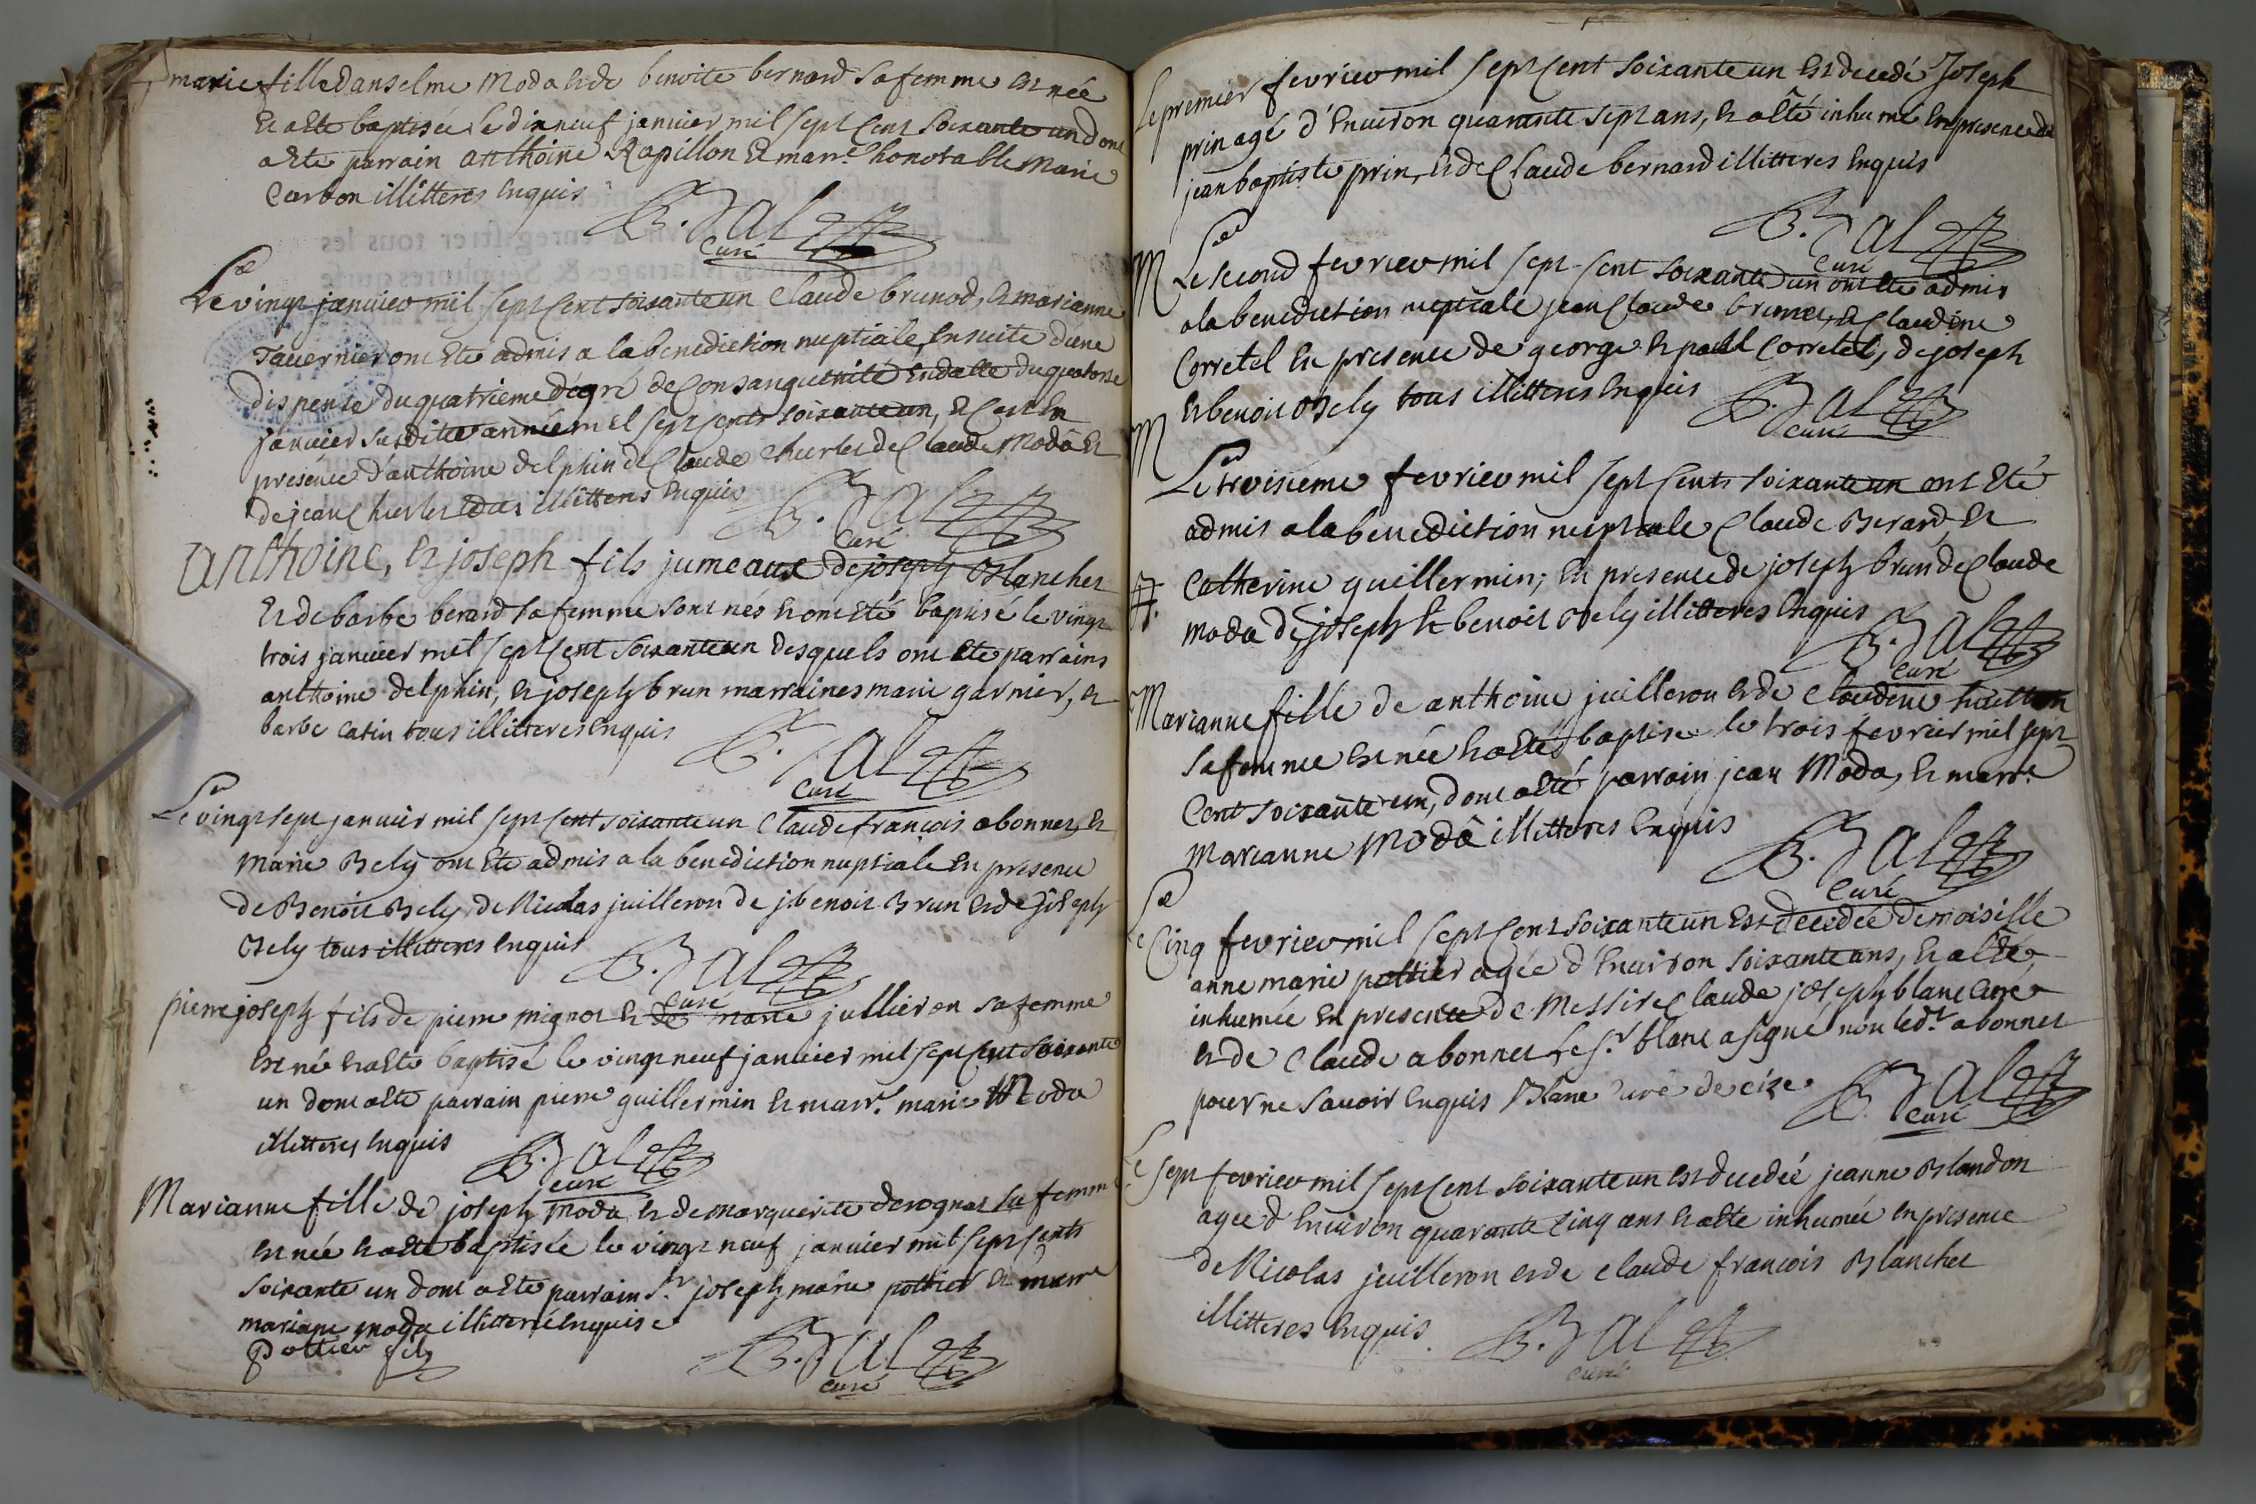 marie fille danselme Moda et de benoite bernard sa femme est née
et a ete baptisée le dix neuf janvier mil sept cent soixante un dont
a ete parrain anthoine Rapillon et marr.e honorable Marie
Carbon illitteres enquis
B. Jal
Curé
Le vingt janvier mil sept cent soixante un Claude brunod, et marianne
Tavernier ont ete admis a la benediction nuptiale, ensuite d'une
dispense du quatrieme degré de consanguinité en datte du quatorse
janvier susditte année mil sept cents soixante un, et c'est en
presence d'anthoine delphin de Claude Churlet de Claude Modâ et
de jean Churlet tous illitteres enquis
B. Jal
Curé
Anthoine, et joseph fils jumeaux de joseph Blanchet
et de barbe berard sa femme sont nés et ont eté baptisé le vingt
trois janvier mil sept cent soixante un desquels ont ete parrains
anthoine delphin, et joseph brun marraines marie garnier, et
barbe catin tous illitteres enquis
B. Jal
Curé
Le vingt sept janvier mil sept cent soixante un Claude françois abonnet, et
Marie Bely ont ete admis a la benediction nuptiale en presence
de Benoit Bely, de Nicolas juilleron de j. benoit Brun et de Joseph
Bely tous illitteres enquis
B. Jal
Curé
pierre joseph fils de pierre mignot et de marie jullieron sa femme
est né et a ete baptisé le vingt neuf janvier mil sept cent soixante
un dont a ete parrain pierre guillermin et marr.e marie Moda
illitteres enquis
B. Jal
curé
Marianne fille de joseph moda et de marguerite derognat sa femme
est née et a ete baptisée le vingt neuf janvier mil sept cents
soixante un dont a ete parrain S.r joseph marie pottier et marr.e
mariane moda illitteré enquise
Pottier fils
B. Jal
curé
Le premier fevrier mil sept cent soixante un est decedé Joseph
prin agé d'environ quarante sept ans, et a été inhumé en presence de
jean baptiste prin, et de Claude bernard illitteres enquis
B. Jal
Curé
M
Le second fevrier mil sept cent soixante un ont ete admis
a la benediction nuptiale jean Claude brunet, et Claudine
Corretel en presence de george et paul Corretel, de joseph
et benoit Bely tous illitteres enquis
B. Jal
Curé
M
Le troisieme fevrier mil sept cents soixante un ont eté
admis a la benediction nuptiale Claude Berard, et
Catherine guillermin; en presence de joseph brun de Claude
moda de joseph et benoit Bely illitteres enquis
B. Jal
Curé
Marianne fille de anthoine juilleron et de Claudine
sa femme est née et a eté baptisé le trois fevrier mil sept
Cent soixante un, dont a eté parrain jean Moda, et marr.e
Marianne Modâ illitteres enquis
B. Jal
Curé
Le Cinq fevrier mil sept cent soixante un est decedée demoiselle
anne marie pottier agée d'environ soixante ans, et a été
inhumée en presence de Messire Claude joseph blanc Curé
et de Claude abonnet Le S.r blanc a signé non led.t abonnet
pour ne savoir enquis Blanc curé de cize
B. Jal
Curé
Le sept fevrier mil sept cent soixante un est decedée jeanne Blandon
agee d'environ quarante cinq ans et a ete inhumée en presence
de Nicolas juilleron et de Claude françois Blanchet
illitteres enquis
B. Jal
curé